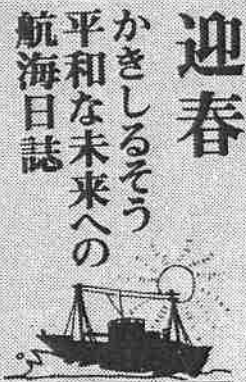 迎春
かきしるそう
平和な未来への
航海日誌